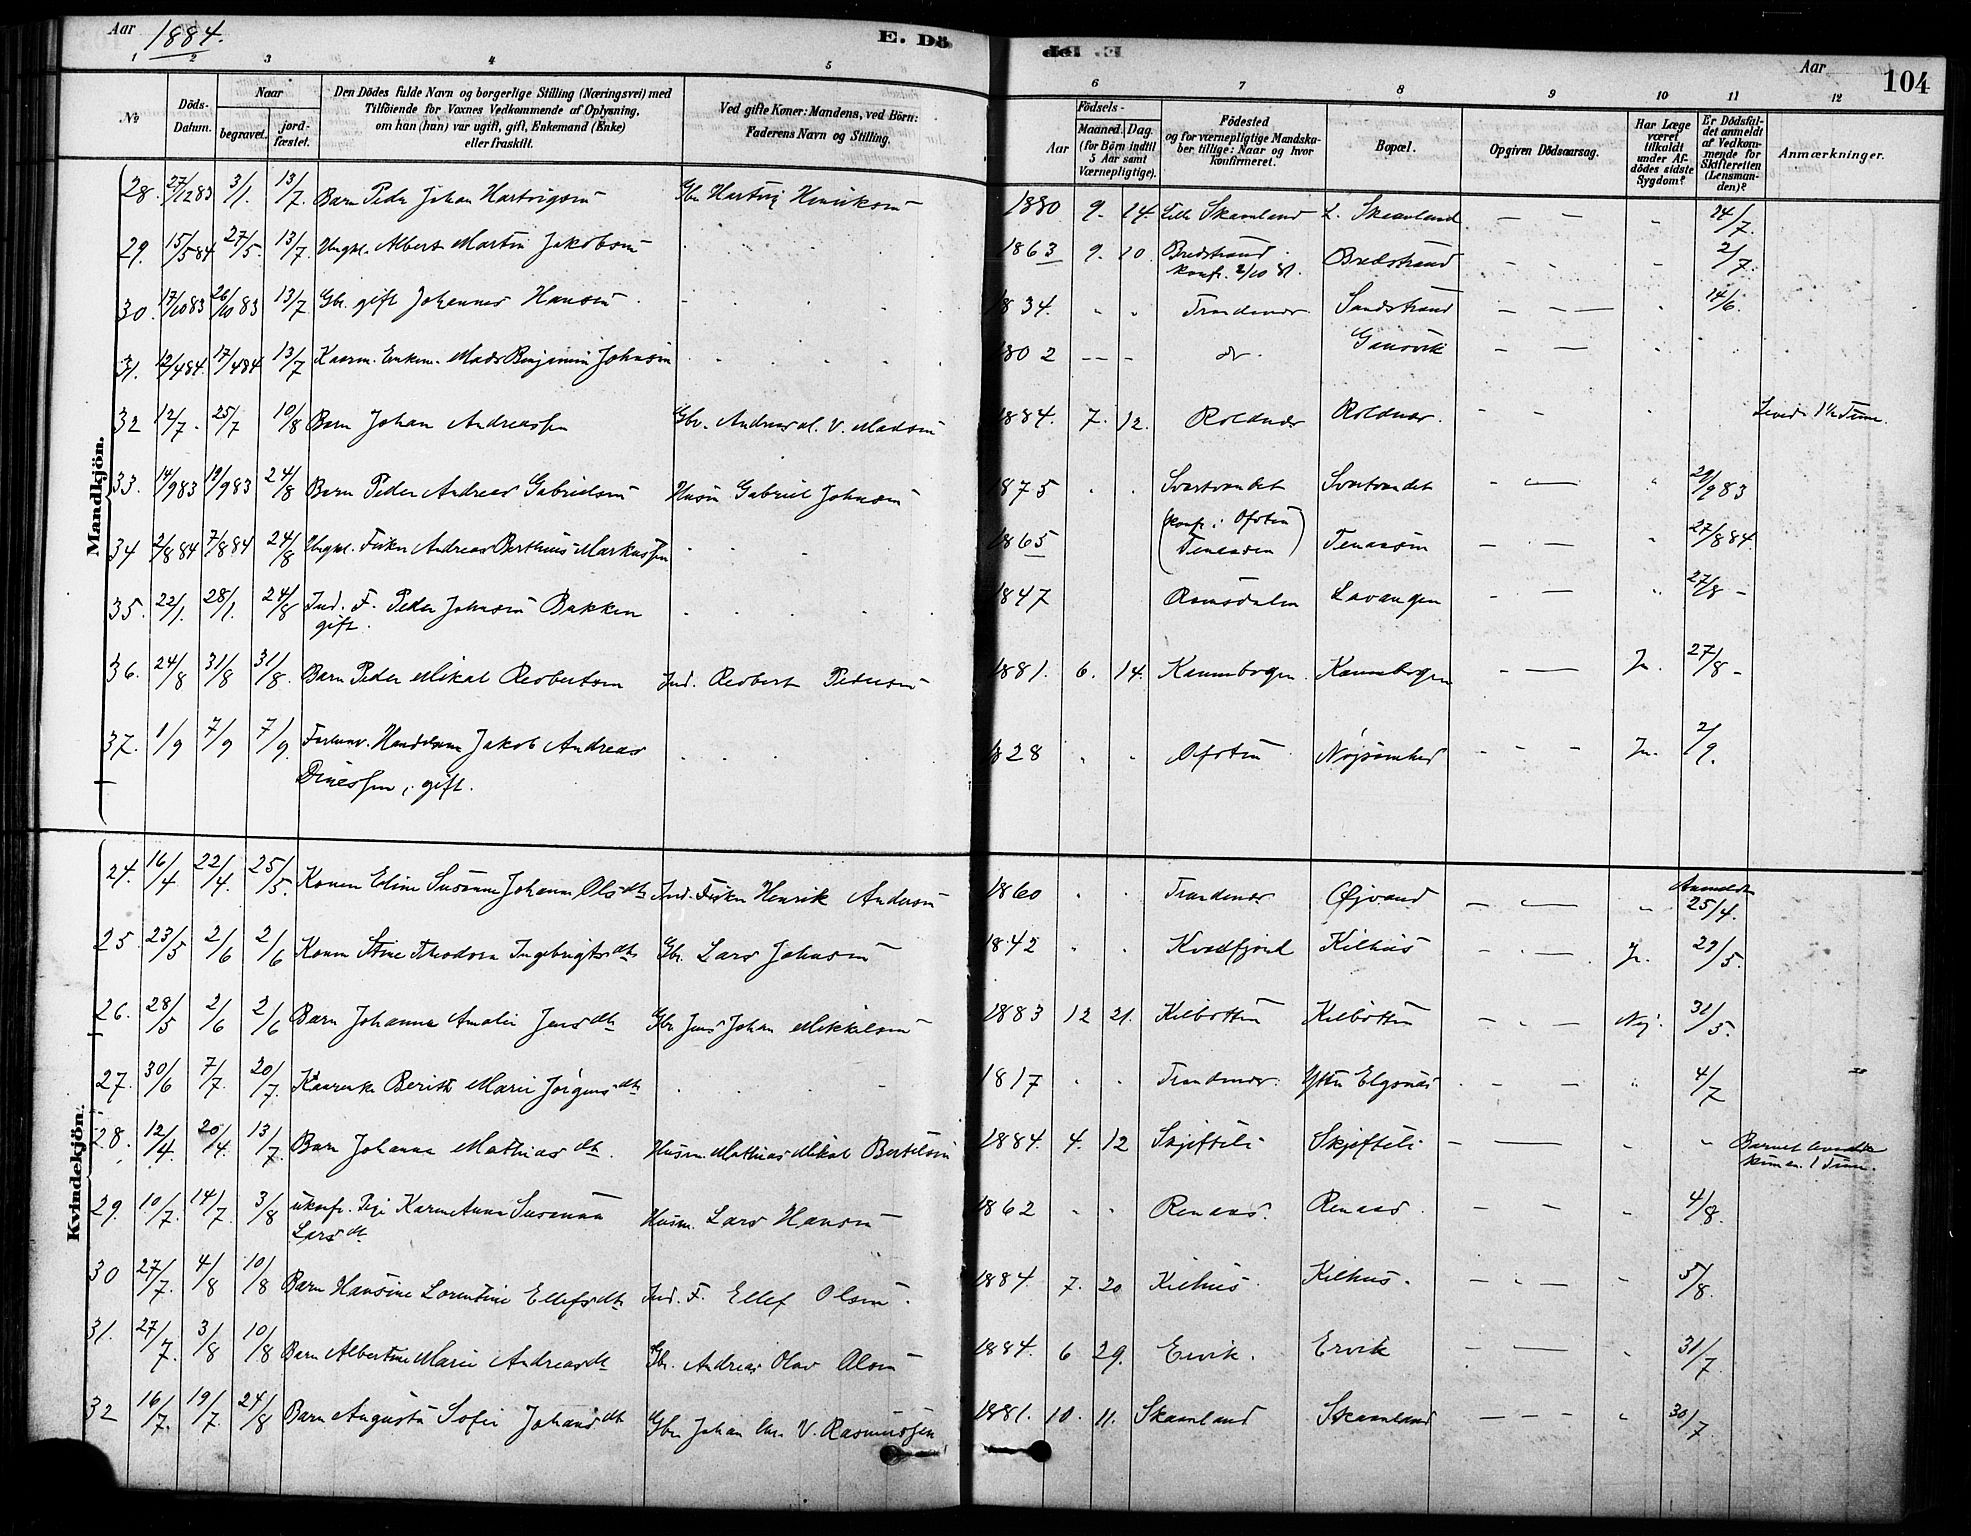 Aar 1884.
E. Dö
del E.
Aar
104
1 2 3 4 5
6 7 8 9 10 11 12
No
Döds-
Datum.
Naar
begravet.
jord-
fæstet.
Den Dödes fulde Navn og borgerlige Stilling (Næringsvei) med
Tilföiende for Voxnes Vedkommende af Oplysning,
om han (hun) var ugift, gift, Enkemand (Enke)
eller fraskilt.
Ved gifte Koner: Mandens, ved Börn:
Faderens Navn og Stilling.
Födsels-
Aar
Maaned. Dag.
(for Börn indtil
5 Aar samt
Værnepligtige).
Födested
og for værnepligtige Mandska-
ber tillige: Naar og hvor
konfirmeret.
Bopæl.
Opgiven Dödsaarsag.
Har Læge
været
tilkaldt
under Af-
dödes sidste
Sygdom?
Er Dödsfal-
det anmeldt
af Vedkom-
mende for
Skifteretten
(Lensman-
den)?
Anmærkninger.
Mandkjön.
28. 27/12 83 3/1. 13/7. Barn Peder Johan Hartvigsen Gbr Hartvig Henriksen 1880 9. 14. Lille Skaanland L. Skaanland 24/7.
29. 15/5 84 27/5. 13/7. Ungkl. Albert Martin Jakobsen 1863 9. 10. Bredstrand Bredstrand 2/7.
konf. 2/10 81.
30. 17/10 83 26/10 83 13/7. Gbr. gift Johannes Hansen 1834. Trondenes Sandstrand 14/6.
31. 12/4 84. 17/4 84 13/7 Kaarm. Enkem. Mads Benjamin Johnsen 1802 do. Gausvik
32 12/7. 25/7 10/8 Barn Johan Andreassen Gbr. Andreas M. V. Madsen 1884. 7. 12. Roldnes Roldnes. Levede 1½ Time.
33. 14/9 83 19/9 83 24/8 Barn Peder Andreas Gabrielsen Husm Gabriel Johnsen 1875 Svartvandet Svartvandet 29/9 83
34 2/8 84 7/8 84 24/8 Ungkl. Fisker Andreas Berthius Markussen 1865 (konf. i Ofoten Tenaasen) Tenaasen 27/8 84.
35. 22/1. 28/1. 24/8 Ind. F. Peder Johnsen Bakken 1847 Romsdalen Lavangen 27/8 -
gift.
36. 24/8 31/8 31/8. Barn Peder Mikal Robertsen Ind. Robert Pedersen 1881. 6. 14. Kannebogen. Kannebogen Ja. 27/8 -
37. 1/9 7/9 7/9. Forhenv. Handelsm Jakob Andreas 1828 Ofoten Nøjsomhed Ja. 2/9.
Dinessen, gift.
Kvindekjön.
24. 16/4 22/4. 25/5. Konen Eline Susanne Johanne Olsdtr Ind. Fisker Henrik Andersen 1860 Trondenes Øjvand Anmeldt 25/4.
25. 23/5 2/6 2/6 Konen Stine Theodora Ingebrigtsdtr Gbr. Lars Johnsen 1842 Kvædfjord Kilhus Ja. 29/5.
26. 28/5 2/6 2/6 Barn Johanna Amalie Jensdtr Gbr Jens Johan Mikkelsen 1883 12 21. Kilbotten Kilbotten Nej. 31/5.
27. 30/6 7/7. 20/7. Kaarenke Berith Marie Jørgensdtr 1817 Trondenes. Ytter Elgsnæs 4/7
28. 12/4. 20/4. 13/7. Barn Johanna Mathiasdtr. Husm. Mathias Mikal Bertelsen 1884. 4. 12 Skjefteli Skjefteli Barnet levede
kun en. 1 Time.
29. 10/7. 14/7. 3/8 ukonf. Pige Karen Anna Susanna Husm. Lars Hansen 1862 Renaas. Renaas. 4/8.
Larsdtr
30 27/7. 4/8 10/8 Barn Hansine Lorentine Ellefsdtr Ind. F. Ellef Olsen. 1884. 7. 20 Kilhus. Kilhus. 5/8.
31. 27/7. 3/8 10/8 Barn Albertine Marie Andreasdtr Gbr. Andreas Olav Olsen 1884. 6 29. Ervik. Ervik 31/7
32 16/7. 19/7. 24/8 Barn Augusta Sofie Johansdtr Gbr Johan Chr. V. Rasmussen 1881. 10. 11. Skaanland Skaanland 30/7